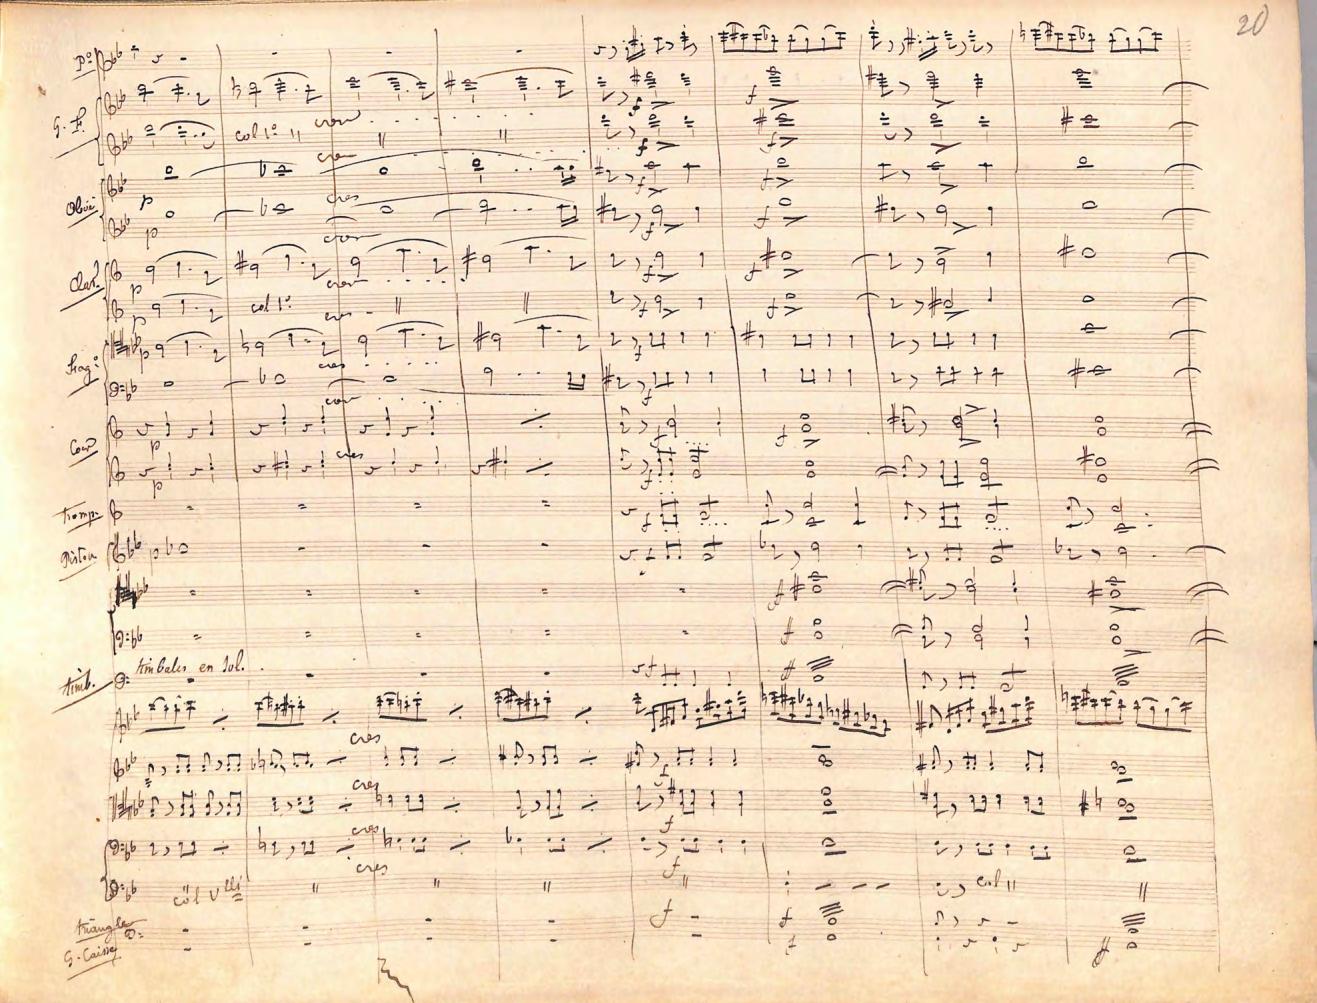 20
Po
G. F.
cres
col 1º "
cres
Oboi
p
cres
f
p
cres
f
Clar.
p
cres
f
p
col 1º
cres
f
Fag:
p
cres
f
cres
f
Cor
p
f
cres
p
f
Tromp.
f
Piston
p
f
f
timbales en Sol.
timb.
cres
cres
f
cres
f
cres
f
col Vlli
col "
triangle
f
f
G. Caisse
f
ff